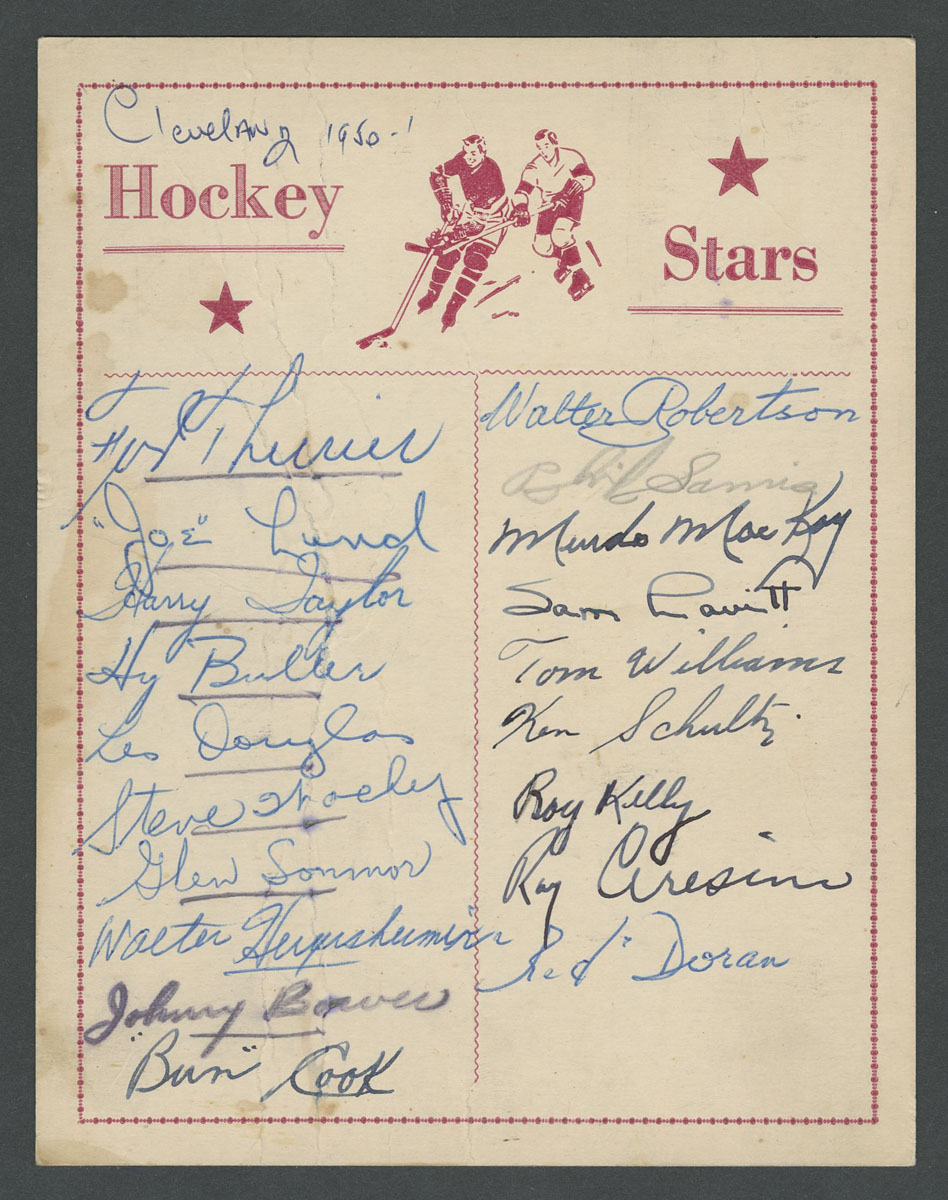 Cleveland 1950-1
Hockey
Stars
Therrier
"Joe" Lund
Harry Taylor
Hy Buller
Les Douglas
Steve Wochy
Glen Sonmor
Walter
Johnny Bower
"Bun" Cook
Walter Robertson
Phil Samis
Murdo MacKay
Sam Lavitt
Tom Williams
Ken Schultz
Roy Kelly
Ray Ceresino
"Red" Doran